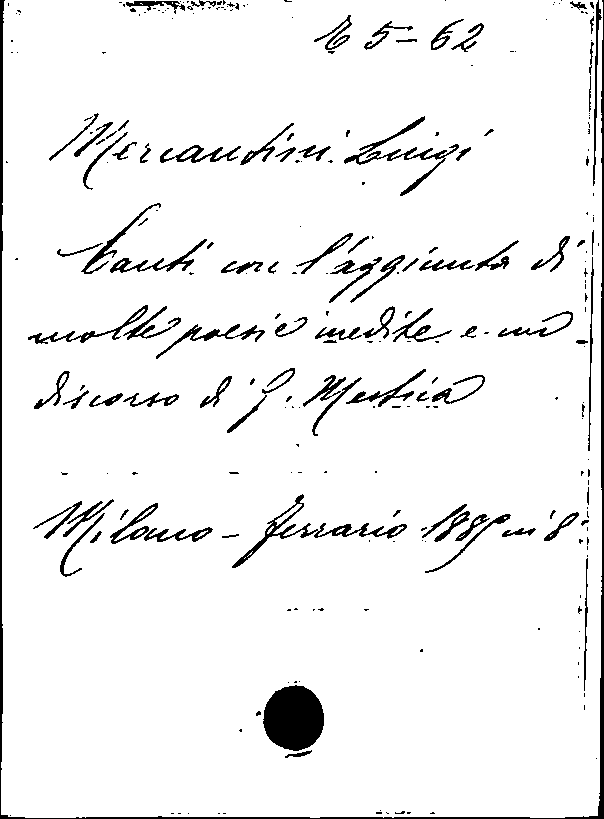 E 5-62
Mercantini Luigi
Canti con l'aggiunta di
molte poesie inedite e un
discorso di G. Mestica
Milano - Ferrario 1885 in 8º